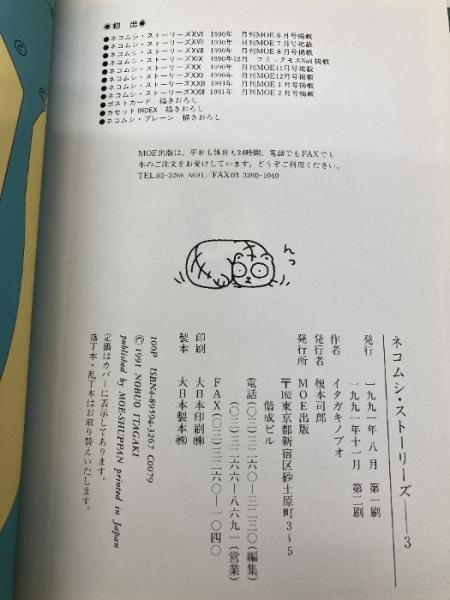 ●初出●
●ネコムシ・ストーリーズXVI 1990年 月刊MOE6月号掲載
●ネコムシ・ストーリーズXVII 1990年 月刊MOE7月号掲載
●ネコムシ・ストーリーズXVIII 1990年 月刊MOE8月号掲載
●ネコムシ・ストーリーズXIX 1990年12月 コミックモエNo8掲載
●ネコムシ・ストーリーズXX 1990年 月刊MOE11月号掲載
●ネコムシ・ストーリーズXXI 1990年 月刊MOE12月号掲載
●ネコムシ・ストーリーズXXII 1991年 月刊MOE1月号掲載
●ネコムシ・ストーリーズXXIII 1991年 月刊MOE2月号掲載
●ポストカード 描きおろし
●カセットINDEX 描きおろし
●ネコムシ・プレーン 描きおろし
MOE出版は、平日も休日も24時間、電話でもFAXでも
本のご注文をお受けしています。どうぞご利用ください。
TEL.03-3266-8691/FAX.03 3260-1040
んっ
ネコムシ・ストーリーズ——3
発行 一九九一年八月 第一刷
一九九一年十一月 第二刷
作者 イタガキノブオ
発行者 榎本司郎
発行所 MOE出版
〒162東京都新宿区砂土原町3〜5
偕成ビル
電話(〇三)三二六〇—三二三〇(編集)
(〇三)三二六六—八六九一(営業)
FAX(〇三)三二六〇—一〇四〇
印刷 大日本印刷㈱
製本 大日本製本㈱
100P ISBN4-89594-3267 C0079
©1991 NOBUO ITAGAKI
published by MOE-SHUPPAN printed in Japan
定価はカバーに表示してあります。
落丁本・乱丁本はお取り替えいたします。